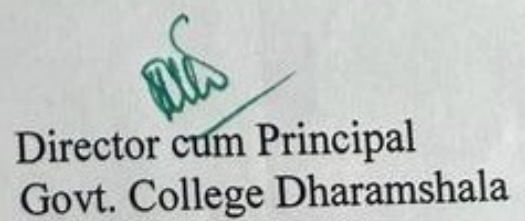 Director cum Principal
Govt. College Dharamshala